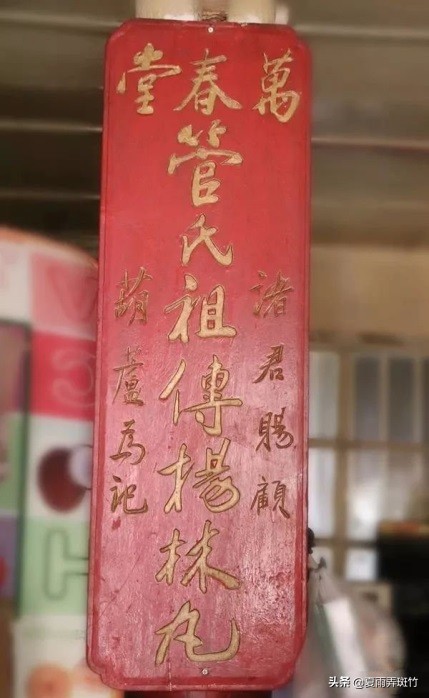 萬春堂
諸君賜顧
管氏祖傳楊林丸
葫蘆為記
头条 @夏雨弄斑竹